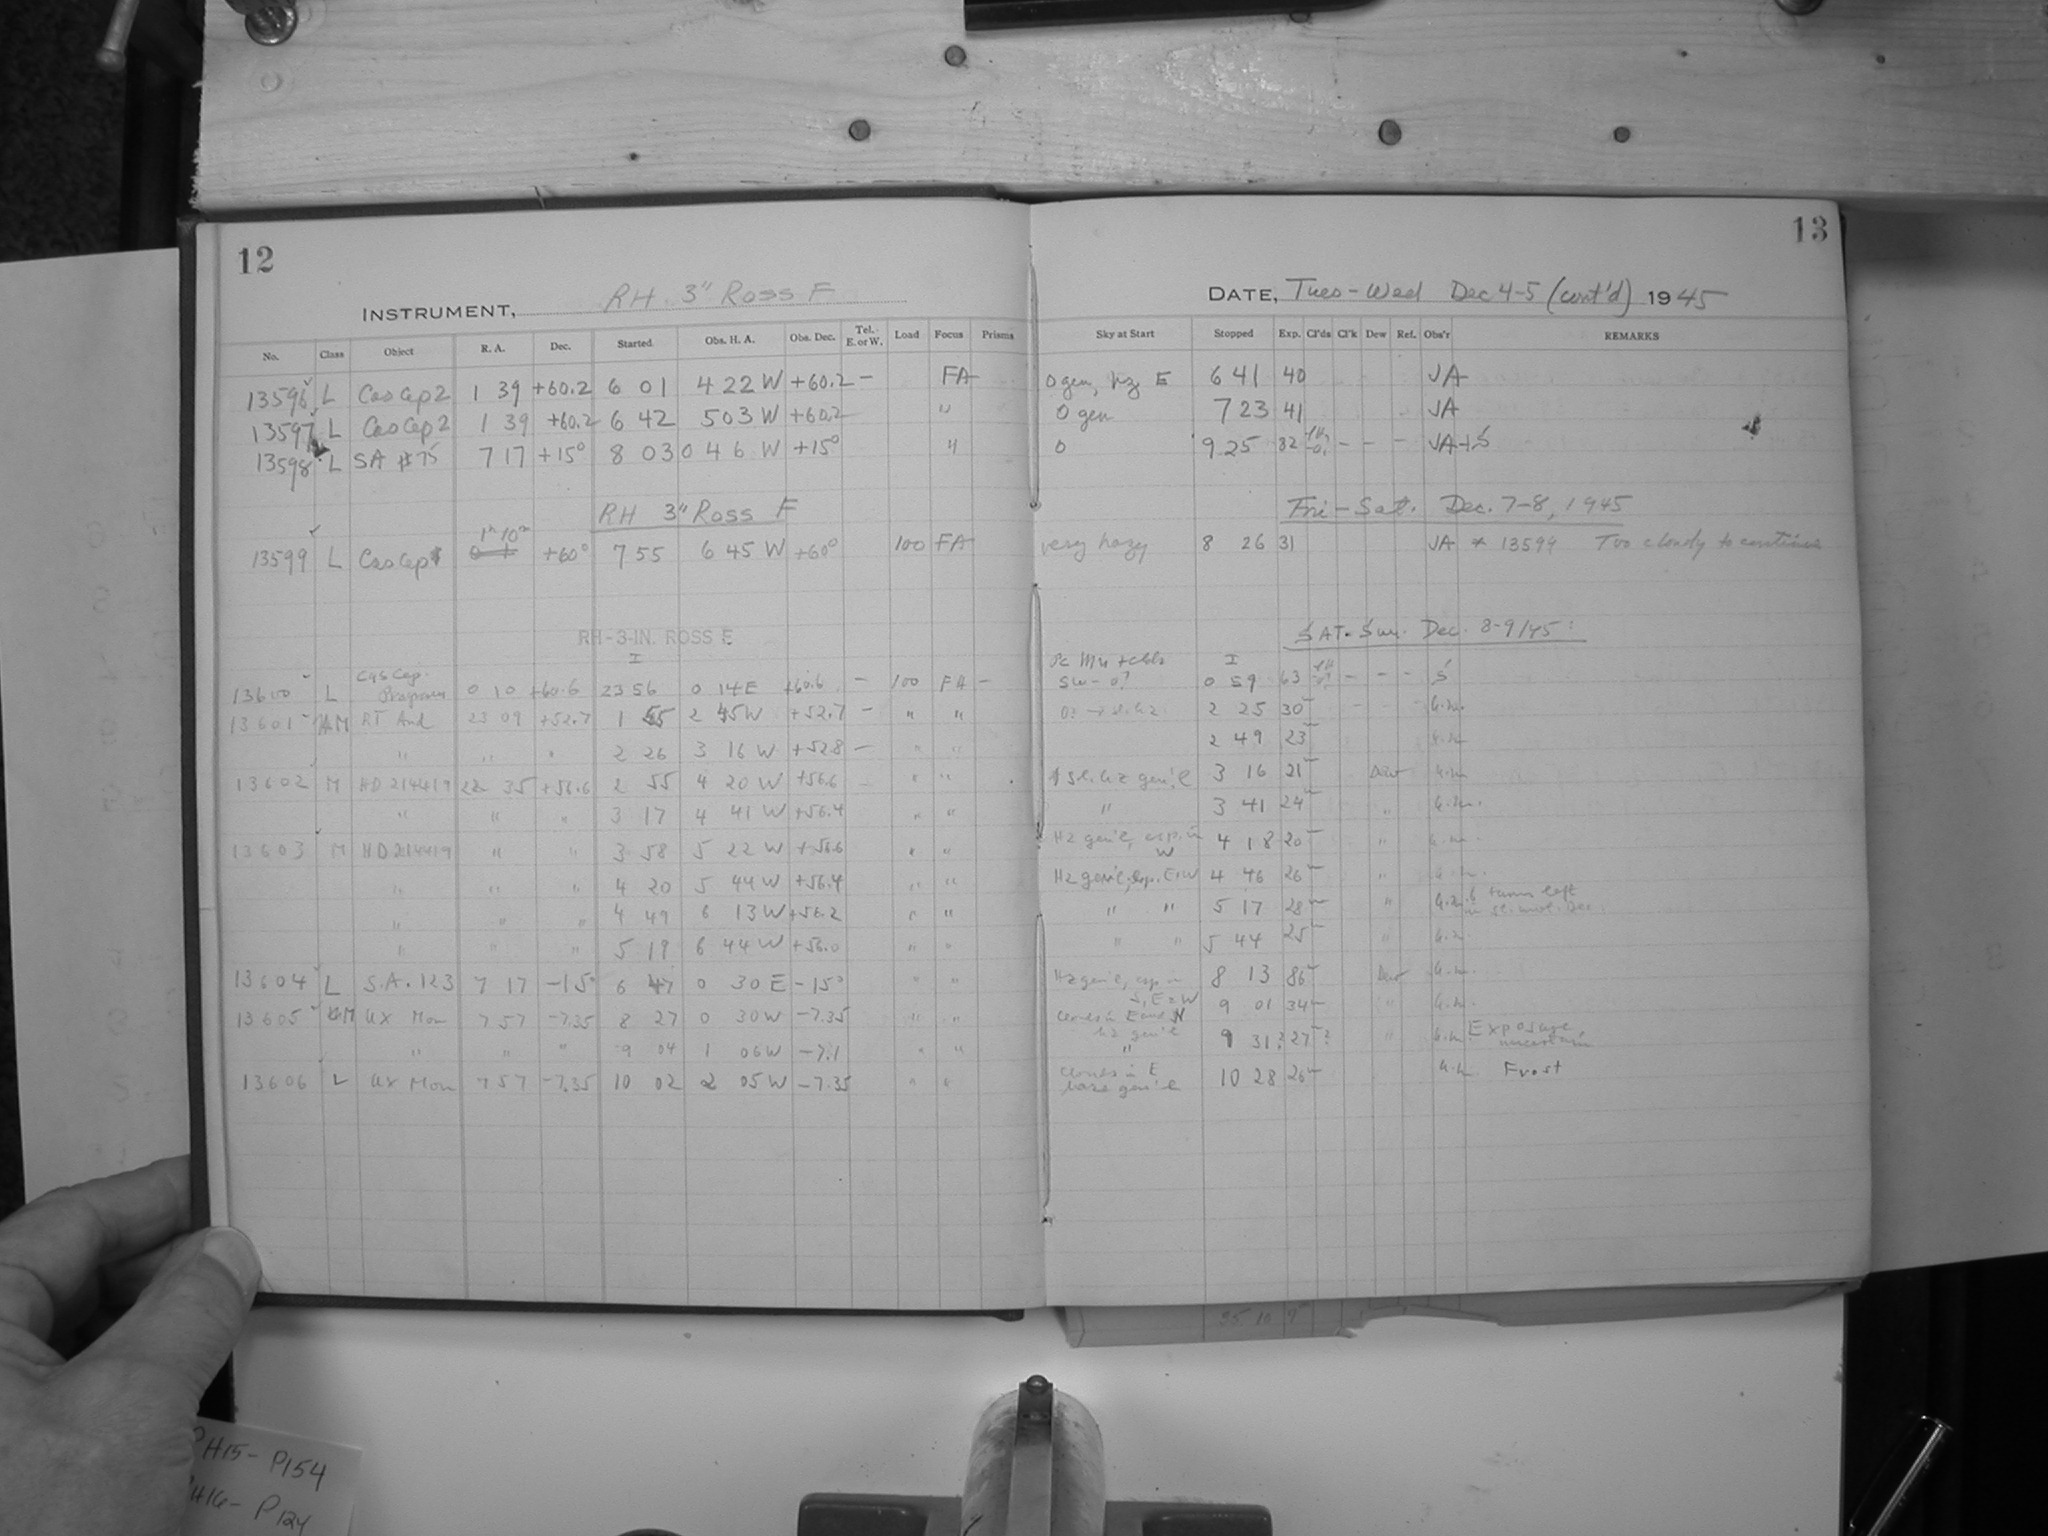 12
INSTRUMENT, RH 3" Ross F
No. Class Object R. A. Dec. Started Obs. H. A. Obs. Dec. Tel. E. or W. Load Focus Prisms
13596 L CasCep2 1 39 +60.2 6 01 4 22 W +60.2 - FA
13597 L CasCep2 1 39 +60.2 6 42 5 03 W +60.2 "
13598 L SA #75 7 17 +15° 8 03 0 46 W +15° "
RH 3" Ross F
1h 10m
13599 L CasCep1 +60° 7 55 6 45 W +60° 100 FA
RH-3-IN. ROSS E
I
13600 L Cas Cep. Program 0 10 +60.6 23 56 0 14 E +60.6 - 100 FA -
13601 M RT And 23 09 +52.7 1 55 2 45 W +52.7 - " "
" " " 2 26 3 16 W +52.8 - " "
13602 M HD 214419 22 35 +56.6 2 55 4 20 W +56.6 " "
" " " 3 17 4 41 W +56.4 " "
13603 M HD 214419 " " 3 58 5 22 W +56.6 " "
" " " 4 20 5 44 W +56.4 " "
" " " 4 49 6 13 W +56.2 " "
" " " 5 19 6 44 W +56.0 " "
13604 L S.A. 123 7 17 -15° 6 47 0 30 E -15° " "
13605 M UX Mon 7 57 -7.35 8 27 0 30 W -7.35 " "
" " " 9 04 1 06 W -7.1 " "
13606 L UX Mon 7 57 -7.35 10 02 2 05 W -7.35 " "
13
DATE, Tues-Wed Dec 4-5 (cont'd) 1945
Sky at Start Stopped Exp. Cl'ds Cl'k Dew Ref. Obs'r REMARKS
0 gen, hz E 6 41 40 JA
0 gen 7 23 41 JA
0 9 25 82 - - - JA+S
Fri-Sat. Dec. 7-8, 1945
very hazy 8 26 31 JA * 13599 Too cloudy to continue
SAT-Sun. Dec. 8-9/45:
I
SW-0? 0 59 63 - - - S
2 25 30
2 49 23
Sl. hz gen'l 3 16 21 Dew
" 3 41 24 "
Hz gen'l, esp. in W 4 18 20 "
Hz gen'l, esp. E+W 4 46 26 "
" " 5 17 28 " turns left in sl. mot. Dec.
" " 5 44 25 "
Hz gen'l, esp. in S, E & W 8 13 86 Dew
Clouds in E and N hz gen'l 9 01 34 "
" 9 31? 27? " Exposure, uncertain
Clouds in E haze gen'l 10 28 26 Frost
35 10 7
PH15-P154
PH16-P124